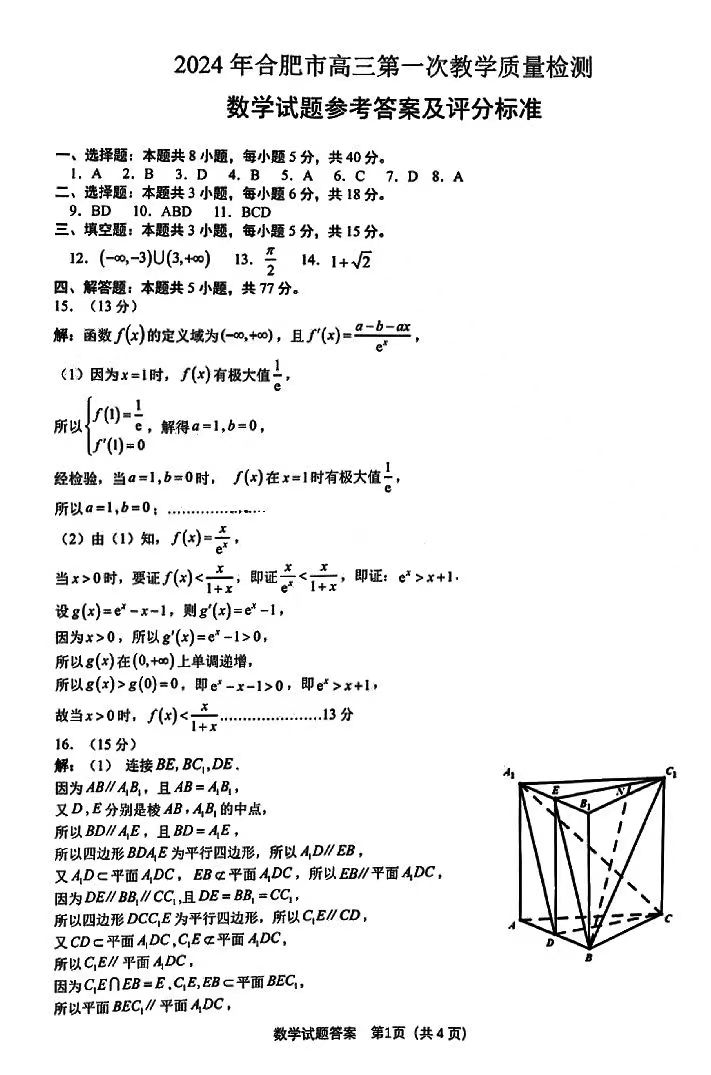 2024年合肥市高三第一次教学质量检测
数学试题参考答案及评分标准
一、选择题：本题共8小题，每小题5分，共40分。
1. A 2. B 3. D 4. B 5. A 6. C 7. D 8. A
二、选择题：本题共3小题，每小题6分，共18分。
9. BD 10. ABD 11. BCD
三、填空题：本题共3小题，每小题5分，共15分。
12. (-∞,-3)∪(3,+∞) 13. π/2 14. 1+√2
四、解答题：本题共5小题，共77分。
15. （13分）
解：函数f(x)的定义域为(-∞,+∞)，且f′(x)=(a-b-ax)/eˣ，
（1）因为x=1时，f(x)有极大值1/e，
所以{f(1)=1/e，f′(1)=0，解得a=1,b=0，
经检验，当a=1,b=0时，f(x)在x=1时有极大值1/e，
所以a=1,b=0；......................
（2）由（1）知，f(x)=x/eˣ，
当x>0时，要证f(x)<x/(1+x)，即证x/eˣ<x/(1+x)，即证：eˣ>x+1.
设g(x)=eˣ-x-1，则g′(x)=eˣ-1，
因为x>0，所以g′(x)=eˣ-1>0，
所以g(x)在(0,+∞)上单调递增，
所以g(x)>g(0)=0，即eˣ-x-1>0，即eˣ>x+1，
故当x>0时，f(x)<x/(1+x)......................13分
16. （15分）
解：（1） 连接BE, BC₁, DE.
因为AB//A₁B₁，且AB=A₁B₁，
又D,E分别是棱AB,A₁B₁的中点，
所以BD//A₁E，且BD=A₁E，
所以四边形BDA₁E为平行四边形，所以A₁D//EB，
又A₁D⊂平面A₁DC，EB⊄平面A₁DC，所以EB//平面A₁DC，
因为DE//BB₁//CC₁,且DE=BB₁=CC₁，
所以四边形DCC₁E为平行四边形，所以C₁E//CD，
又CD⊂平面A₁DC,C₁E⊄平面A₁DC，
所以C₁E//平面A₁DC，
因为C₁E∩EB=E,C₁E,EB⊂平面BEC₁，
所以平面BEC₁//平面A₁DC，
A₁
C₁
E
N
B₁
A
C
D
B
数学试题答案 第1页（共4页）